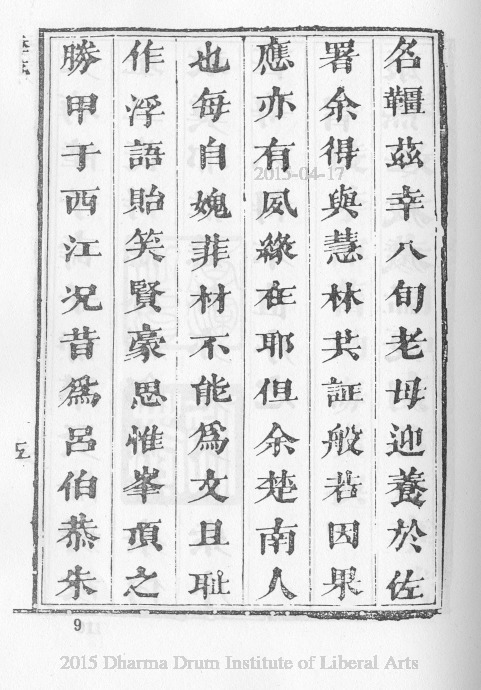 名韁茲幸八旬老母迎養於佐
署余得與慧林共証般若因果
應亦有夙緣在耶但余楚南人
也每自媿菲材不能為文且耻
作浮語貽笑賢豪思惟峯頂之
勝甲于西江况昔為呂伯恭朱
五
9
2015-04-17
2015 Dharma Drum Institute of Liberal Arts